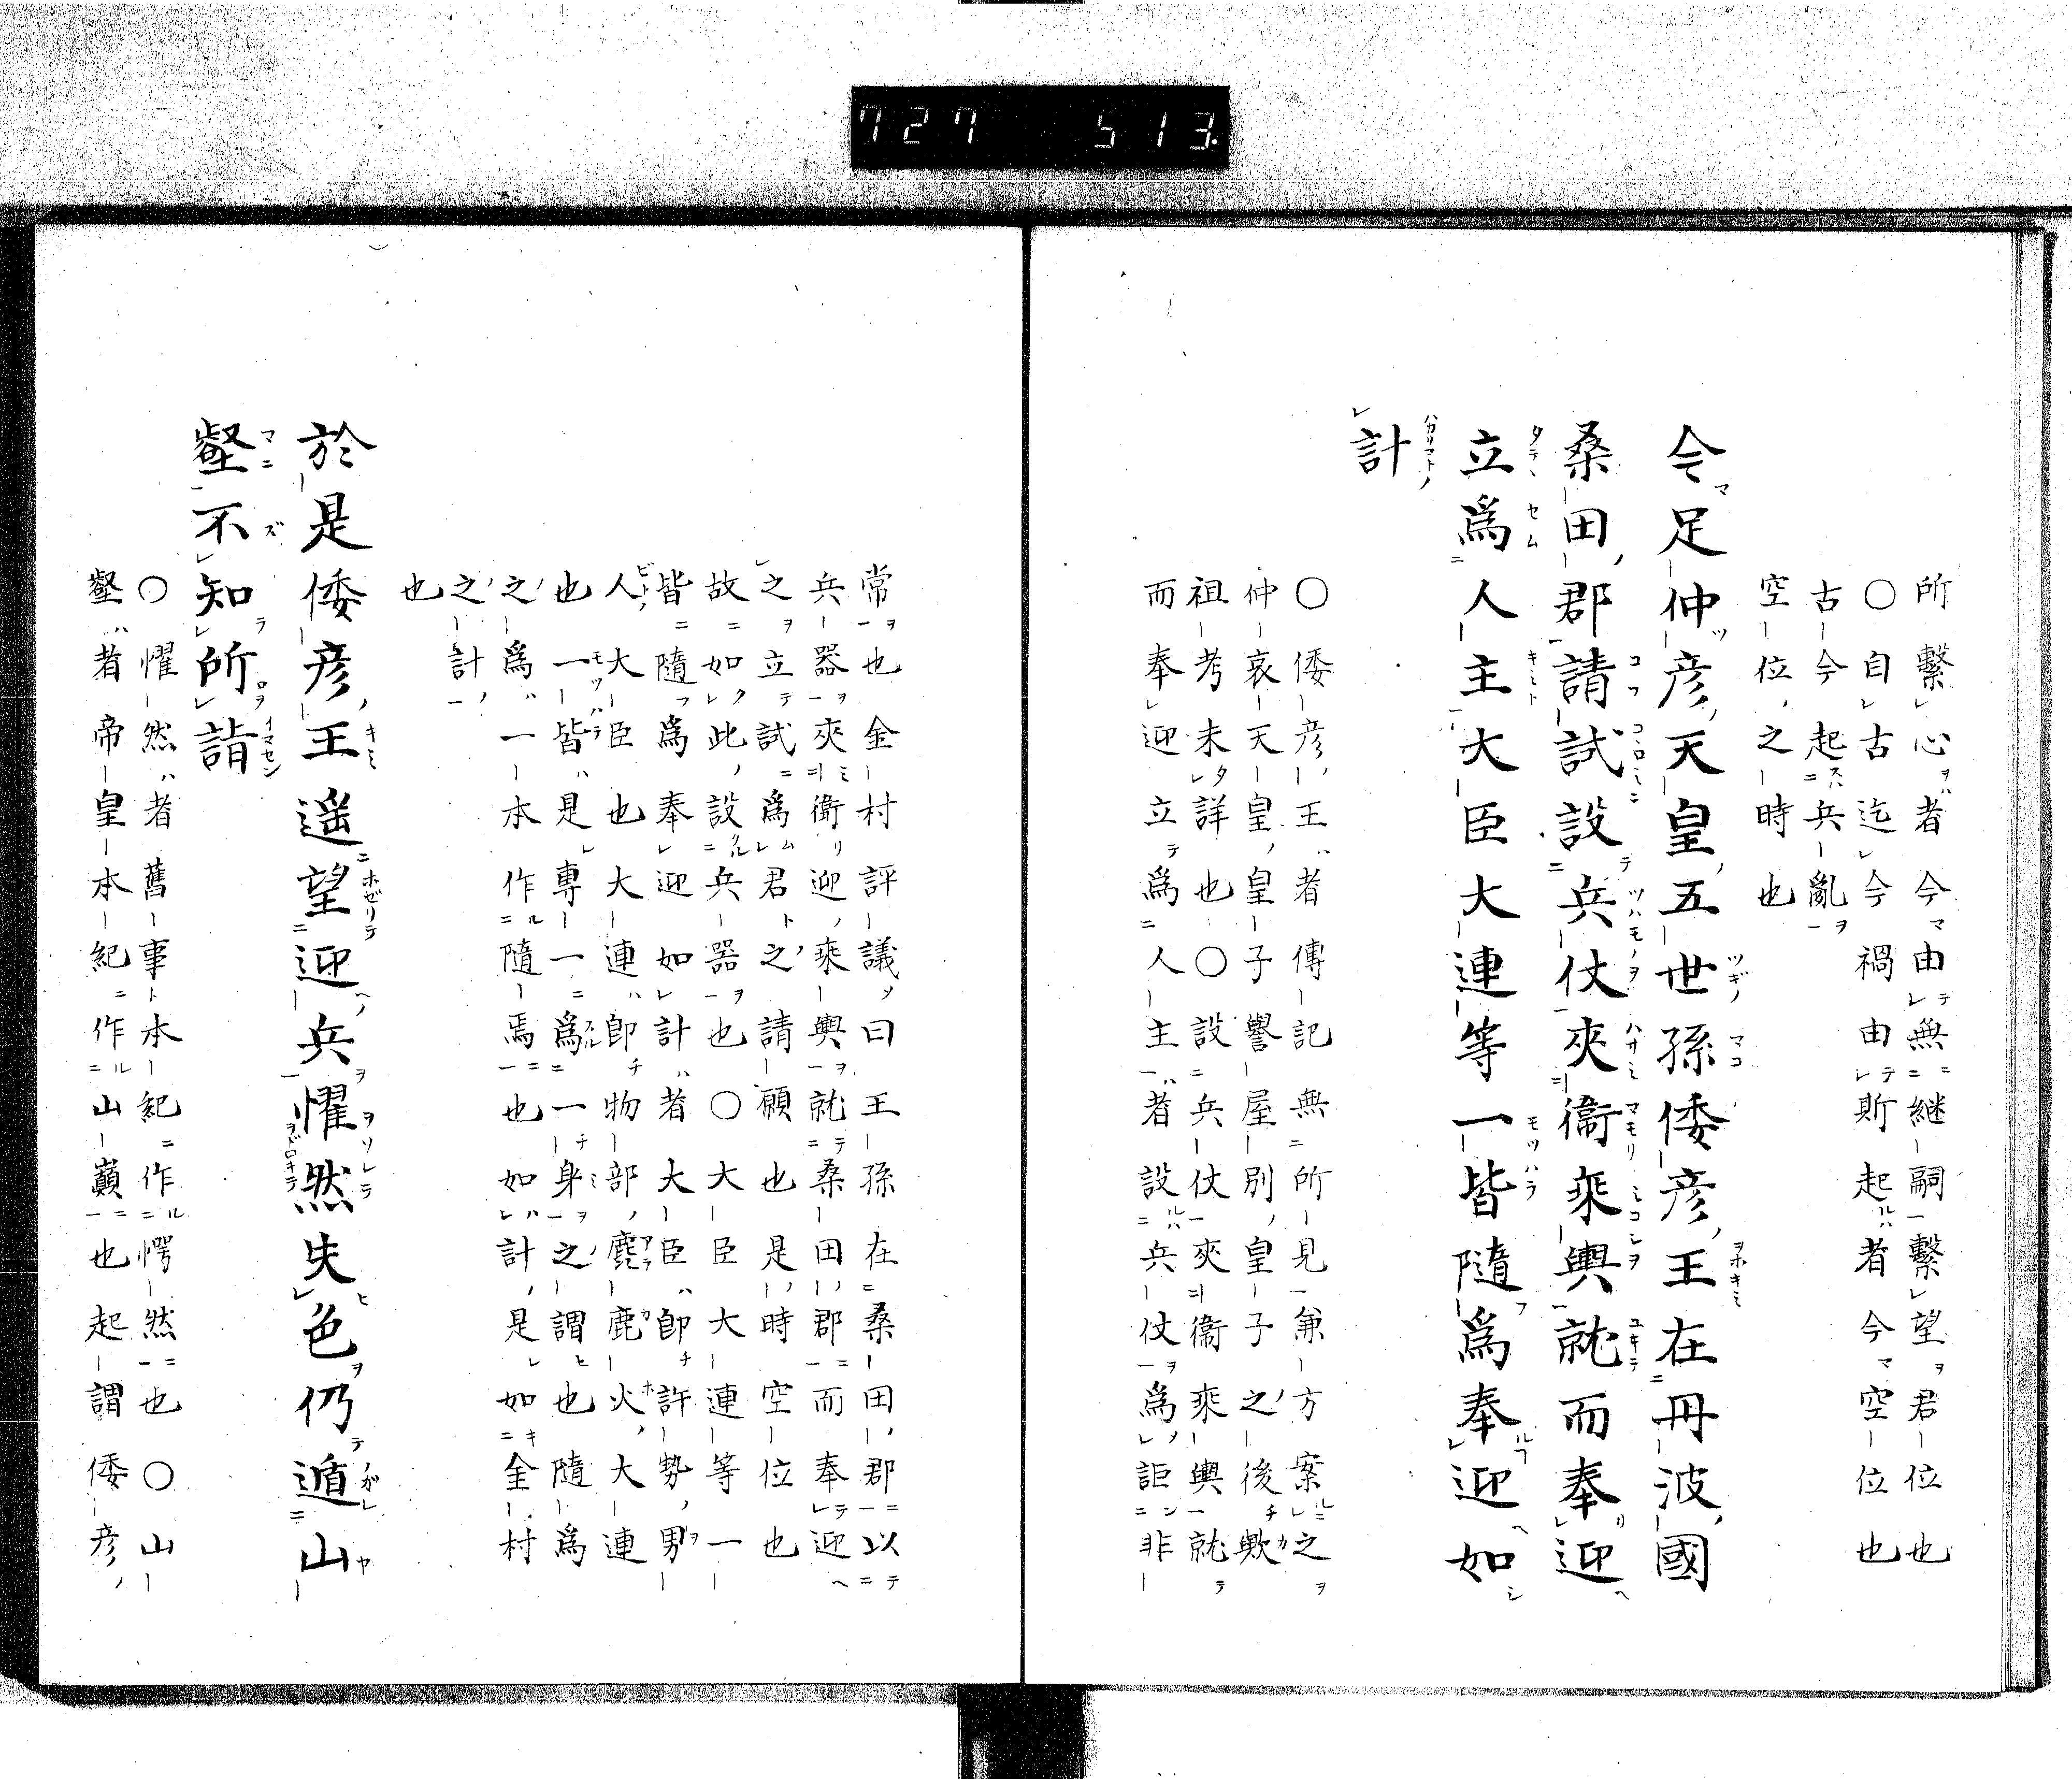 727 513
所繫心者今由無継嗣繫望君位也
○自古迄今禍由斯起者今空位也
古今起兵亂
空位之時也
今足仲彦天皇五世孫倭彦王在丹波國
桑田郡請試設兵仗夾衞乘輿就而奉迎
立爲人主大臣大連等一皆隨爲奉迎如
計
○倭彦王者傳記無所見兼方案之
仲哀天皇皇子譽屋別皇子之後歟
祖考未詳也○設兵仗夾衞乘輿就
而奉迎立爲人主者設兵仗爲詎非
常也金村評議曰王孫在桑田郡以
兵器夾衞迎乘輿就桑田郡而奉迎
之立試爲君之請願也是時空位也
故如此設兵器也○大臣大連等一
皆隨爲奉迎如計者大臣即許勢男
人大臣也大連即物部麁鹿火大連
也一皆是專一爲一身之謂也隨爲
之爲一本作隨焉也如計是如金村
之計
也
於是倭彦王遥望迎兵懼然失色仍遁山
壑不知所詣
○懼然者舊事本紀作愕然也○山
壑者帝皇本紀作山巔也起謂倭彦